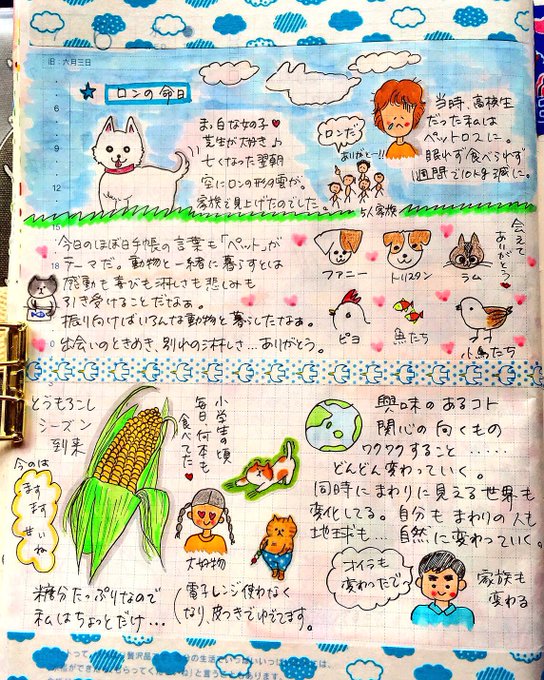 旧:六月三日
6
9
12
15
18
★ ロンの命日
まっ白な女の子♥
芝生が大好き♪
亡くなった翌朝
空にロンの形の雲が。
家族で見上げたのでした。
ロンだ
ありがとー!!
5人家族
当時、高校生
だった私は
ペットロスに。
眠れず食べられず
1週間で10キロ減に。
今日のほぼ日手帳の言葉も「ペット」が
テーマだ。動物と一緒に暮らすとは
感動も喜びも淋しさも悲しみも
引き受けることだなぁ。
振り向けばいろんな動物と暮らしたなぁ。
出会いのときめき、別れの淋しさ…ありがとう。
ファニー
トリスタン
ラム
会えて
ありがとう
ピヨ
魚たち
小鳥たち
とうもろこし
シーズン
到来
今のは
ますます
甘いね
小学生の頃
毎日何本も
食べてた♥
大好物
糖分たっぷりなので
私はちょっとだけ…
(電子レンジ使わなく
なり、皮つきでゆでてます。
興味のあるコト
関心の向くもの
ワクワクすること……
どんどん変わっていく。
同時にまわりに見える世界も
変化してる。自分もまわりの人も
地球も…自然に変わっていく。
オイラも
変わったでへ
家族も
変わる